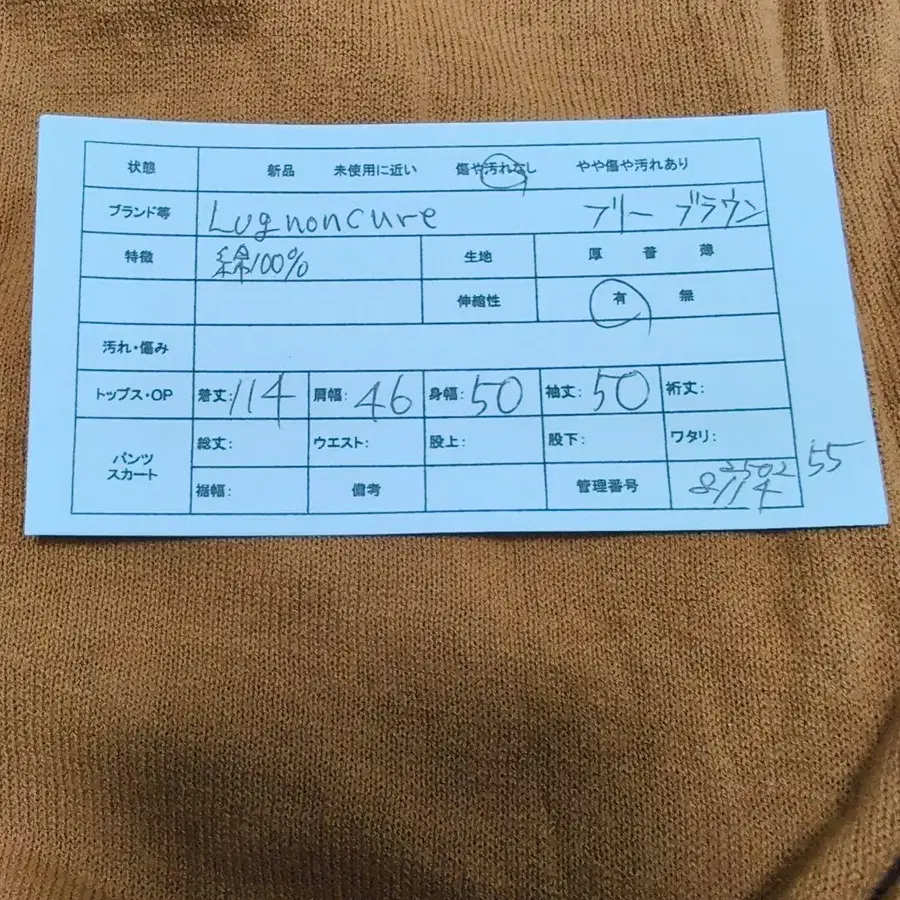 状態 新品 未使用に近い 傷や汚れなし やや傷や汚れあり
ブランド等 Lugnoncure フリー ブラウン
特徴 綿100% 生地 厚 普 薄
伸縮性 有 無
汚れ・傷み
トップス・OP 着丈:114 肩幅:46 身幅:50 袖丈:50 裄丈:
パンツ スカート 総丈: ウエスト: 股上: 股下: ワタリ:
裾幅: 備考 管理番号 2502 8114 55